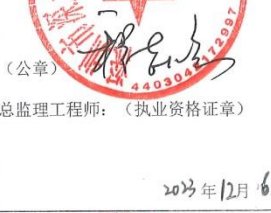 （公章）
4403041172997
总监理工程师：（执业资格证章）
2023年12月6